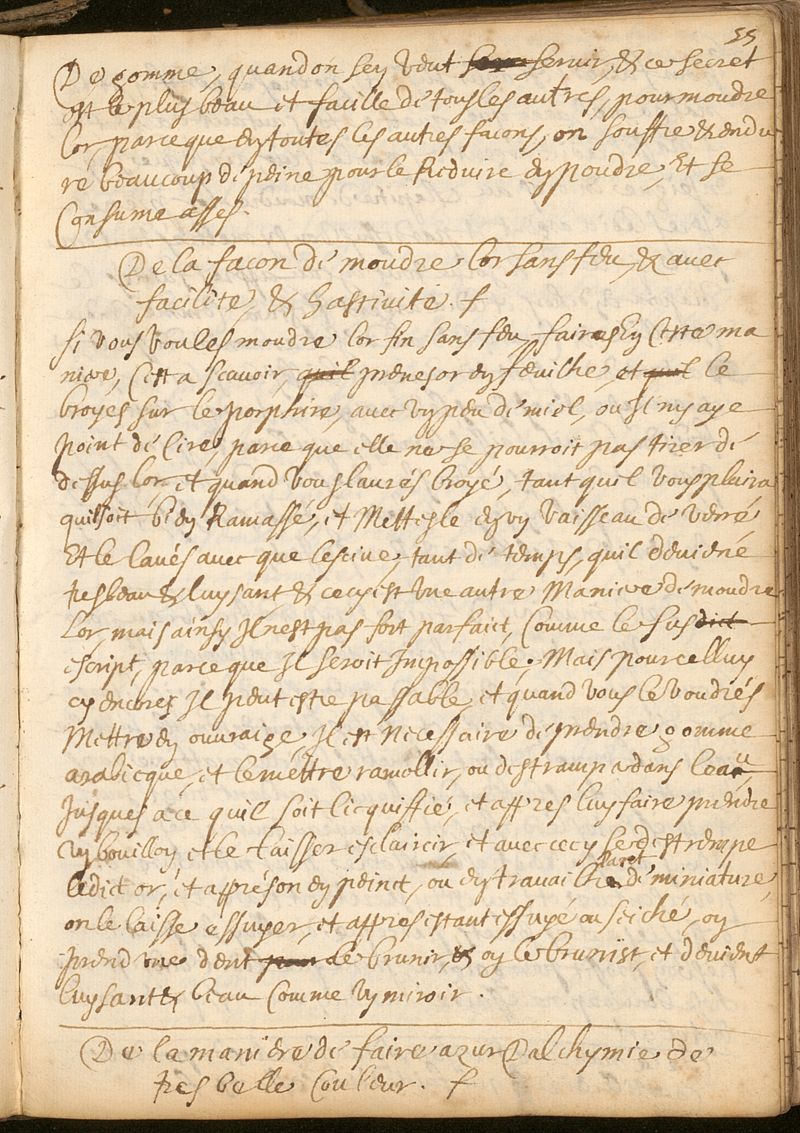 55
De gomme, quand on sen veut servir, & ce secret
est le plus beau et facille de tous les autres, pour moudre
lor, parce que en toutes les autres facons, on souffre & endu
re beaucoup de peine pour le Reduire en poudre, Et se
Consume asses.
De la facon de moudre lor sans feu, & avec
facilite, & hastivité. f
Si vous voules moudre lor fin sans feu, faires En Ceste ma
niere, Cest a scavoir, quil prenes or en feuilhe, et quil le
broyes sur le porphire, avec un peu de miel, ou Il ny aye
point de Cire, parce que elle ne se pourroit pas tirer de
dessus lor et quand vous laurés broyé, tant quil vous plaira
quil soit bien Ramassé, et Mettes le en un vaisseau de verre
Et le lavés avec que lescive, tant de temps, quil devienne
tres beau & luysant, & cecy est une autre Maniere de moudre
Lor, mais ainsy Il nest pas fort parfaict, Comme le susdict
escript, parce que Il seroit Impossible, Mais pour celluy
cy encores Il peut estre passable, et quand vous le voudrés
Mettre en ouvraige, Il est Necessaire de prendre gomme
arabicque, et le mettre ramollir, ou destrampa dans leau,
Jusques a ce quil soit licquiffié, et appres luy faire prendre
un bouillon et le laisser esclaircir, et avec cecy se destrempe
ledict or, et apprés on en peinct, ou en travaille de miniature,
on le laisse essuyer, et appres estant essuyé ou seiché, on
prend une dent pour le brunir, & on le brunist, et devient
luysant & beau Comme un miroir.
De la maniere de faire azur Dalchymie de
tres belle Couleur. f